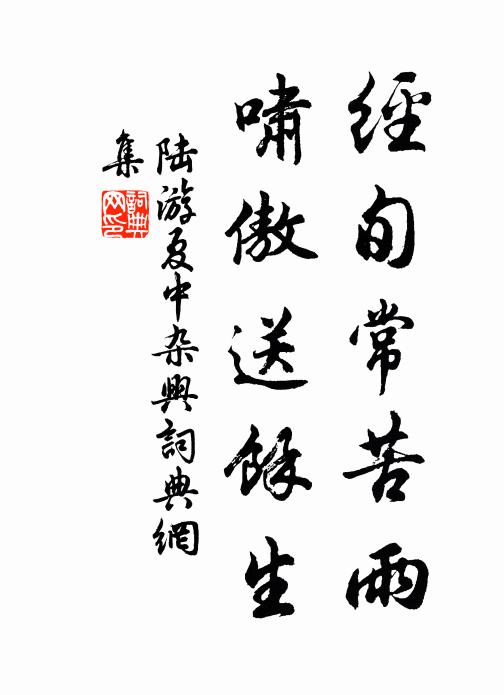 經旬常苦雨
嘯傲送餘生
陸游夏中杂興詞典網
集
詞典
网印